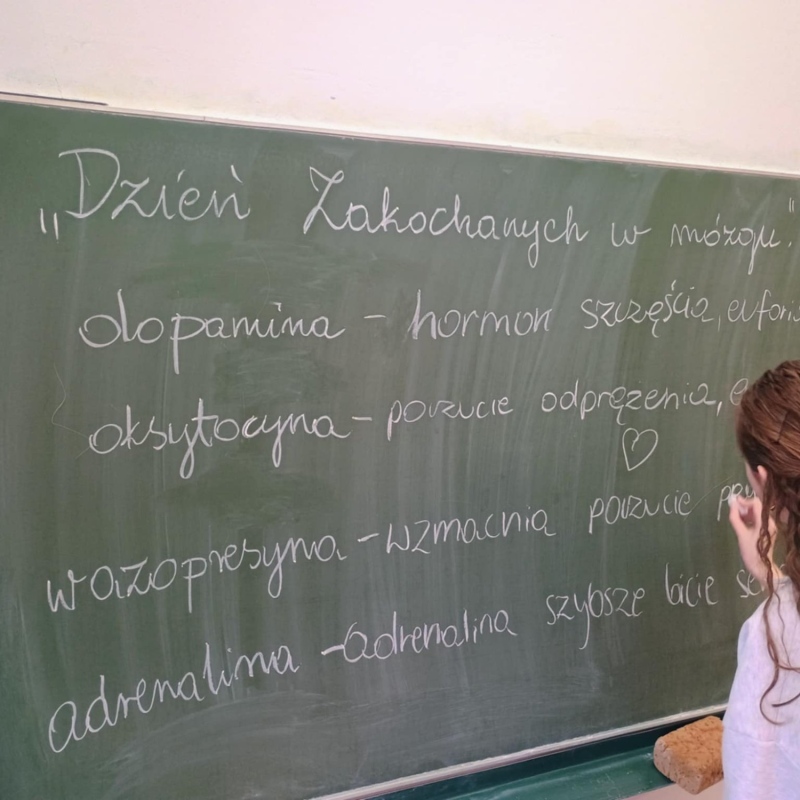 „Dzień Zakochanych w mózgu."
dopamina - hormon szczęścia, eufori
oksytocyna - poczucie odprężenia,
wazopresyna - wzmacnia poczucie
adrenalina - adrenalina szybsze bicie se